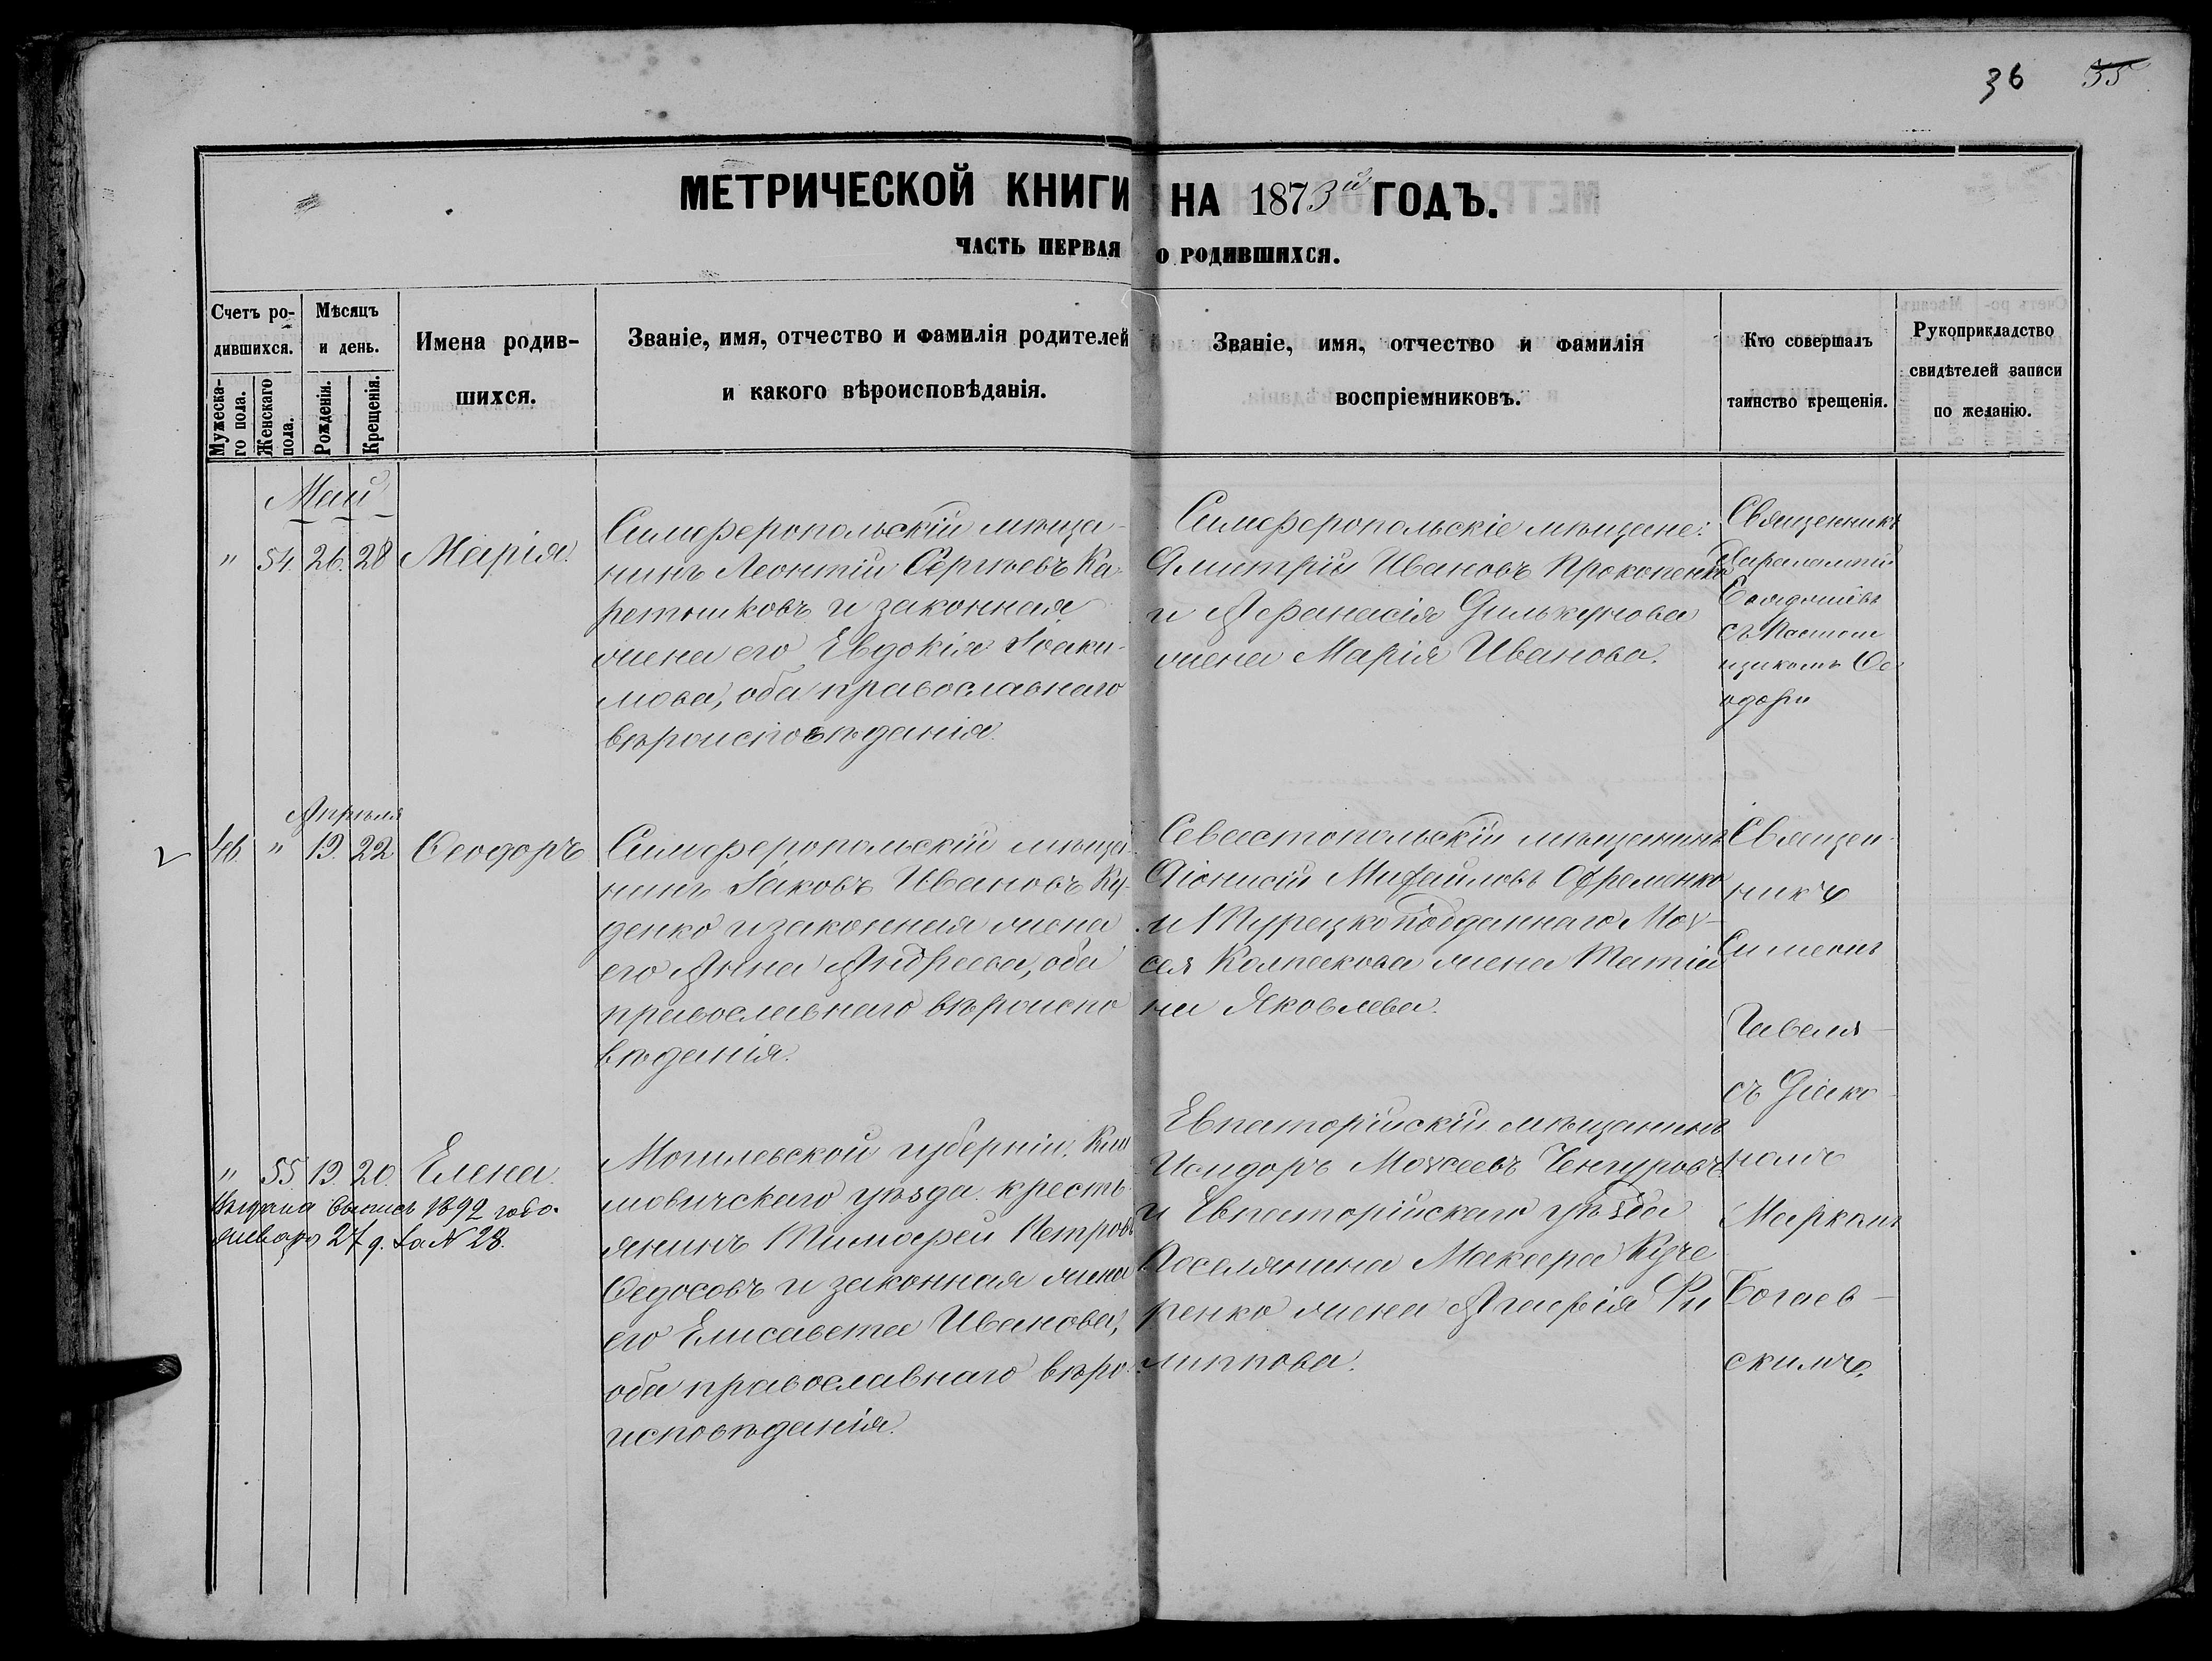 36 35
МЕТРИЧЕСКОЙ КНИГИ НА 1873й ГОДЪ.
ЧАСТЬ ПЕРВАЯ О РОДИВШИХСЯ.
Счетъ ро-
дившихся.
Мужеска-
го пола.
Женскаго
пола.
Мѣсяцъ
и день.
Рожденія.
Крещенія.
Имена родив-
шихся.
Званіе, имя, отчество и фамилія родителей
и какого вѣроисповѣданія.
Званіе, имя, отчество и фамилія
воспріемниковъ.
Кто совершалъ
таинство крещенія.
Рукоприкладство
свидѣтелей записи
по желанію.
Май
" 54 26. 28 Марія.
Симферопольскій мѣща-
нинъ Леонтій Сергѣевъ Ка-
ретниковъ и законная
жена его Евдокія Іоаки-
мова, оба православнаго
вѣроисповѣданія.
Симферопольскіе мѣщане:
Димитрій Ивановъ Прокопенко
и Афанасія Дилькунова
жена Марія Иванова.
Священникъ
Харалампій
съ
Апрѣля
46 " 19. 22 Ѳеодоръ
Симферопольскій мѣща-
нинъ Іаковъ Ивановъ Ку-
денко и законная жена
его Анна Андреева, оба
православнаго вѣроиспо
вѣданія.
Севастопольскій мѣщанинъ
Діонисій Михаиловъ Ефременко
и Турецко подданнаго Моѵ-
сея Колпакова жена Татіа
на Яковлева.
Священ-
никъ
Симеонъ
Гавеля
съ Діако-
номъ
Маркомъ
Богаев-
скимъ.
" 55 19. 20. Елена.
Выдана выпись 1892 года
января 27 д. за N 28.
Могилевской губерніи, Кли
мовичскаго уѣзда кресть-
янинъ Тимофей Петровъ
Ѳедосовъ и законная жена
его Елисавета Иванова,
оба православнаго вѣро-
исповѣданія.
Евпаторійскій мѣщанинъ
Исидоръ Моѵсеевъ Ченгуровъ
и Евпаторійскаго уѣзда
Поселянина Макара Куче
ренко жена Агафія Фи
липпова.